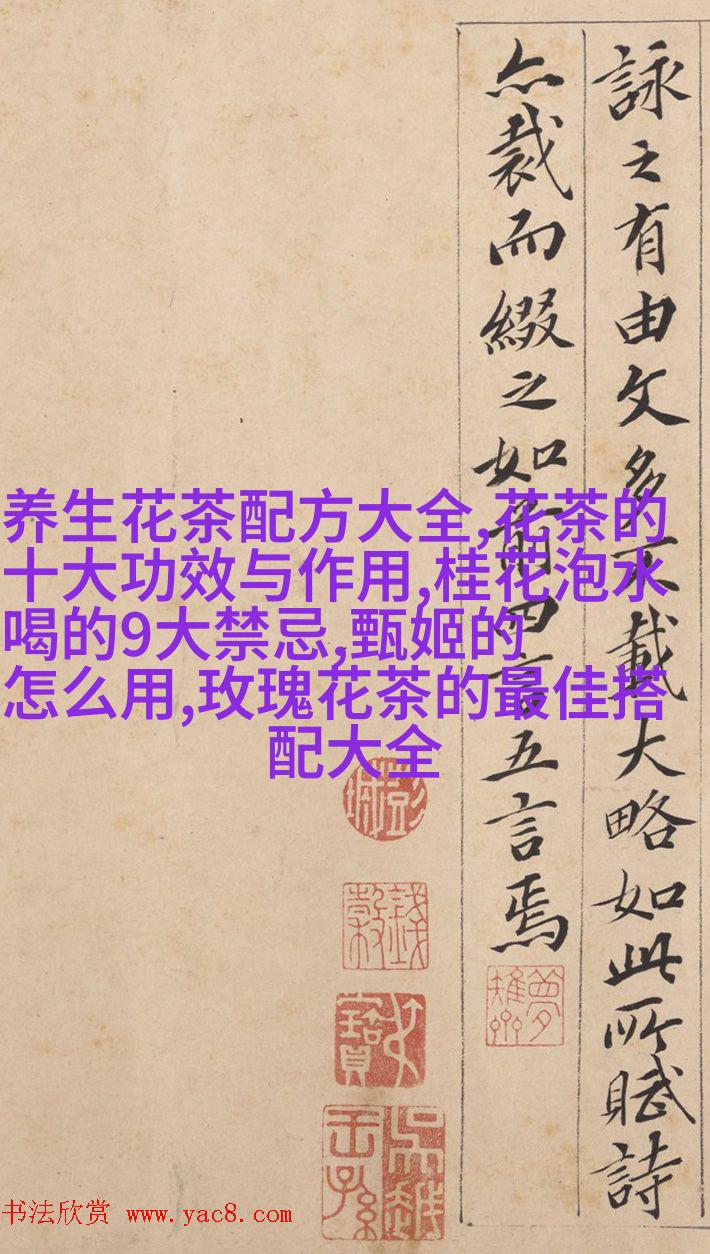 詠之有由文多不載大略如此所賦詩
亦裁而綴之如前四言五言焉
养生花茶配方大全,花茶的
十大功效与作用,桂花泡水
喝的9大禁忌,甄姬的
怎么用,玫瑰花茶的最佳搭
配大全
书法欣赏 www.yac8.com